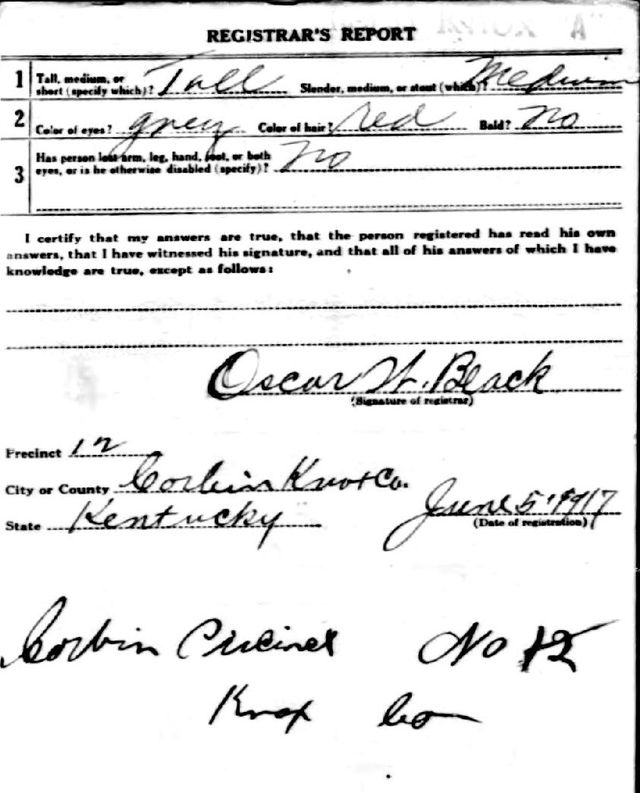 REGISTRAR'S REPORT
1 Tall, medium, or short (specify which)? Tall Slender, medium, or stout (which)? Medium
2 Color of eyes? grey Color of hair? red Bald? No
3 Has person lost arm, leg, hand, foot, or both eyes, or is he otherwise disabled (specify)? No
I certify that my answers are true, that the person registered has read his own
answers, that I have witnessed his signature, and that all of his answers of which I have
knowledge are true, except as follows:
Oscar W. Black
(Signature of registrar)
Precinct 12
City or County Corbin Knox Co.
State Kentucky June 5, 1917
(Date of registration)
Corbin Precinct No 12
Knox Co